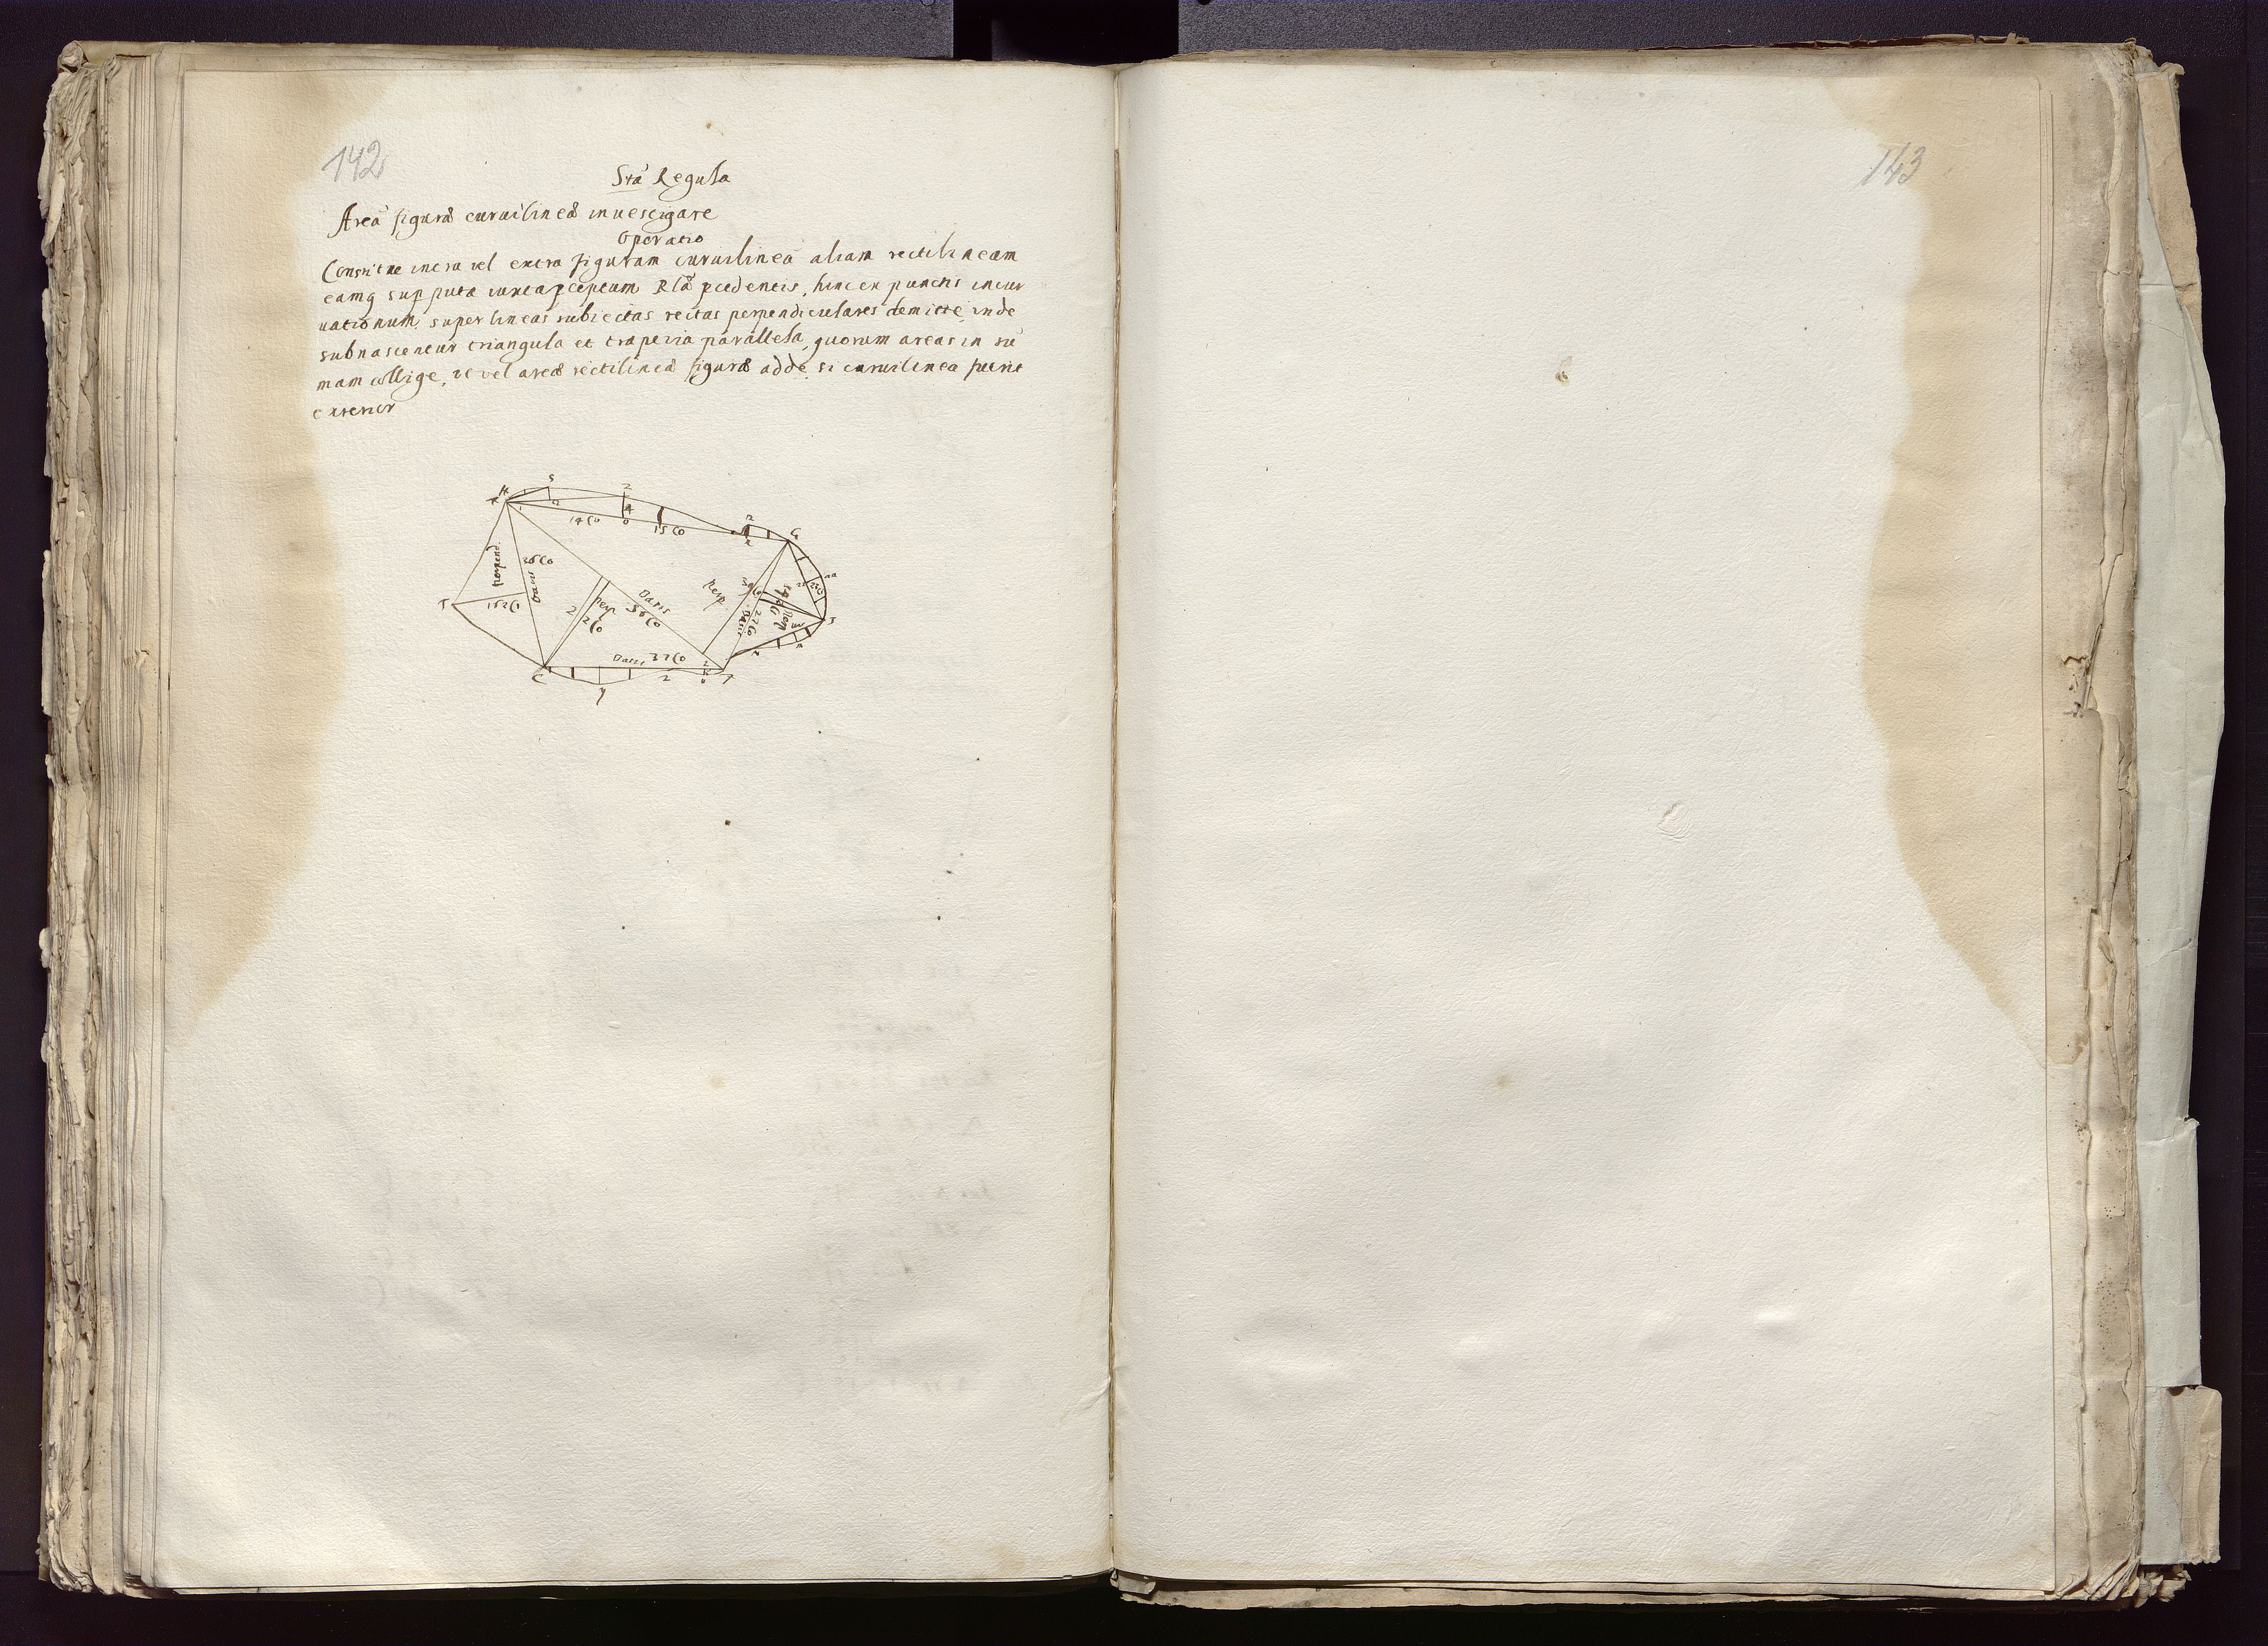 142
Sta Regula
Areã figuræ curuilineæ inuestigare
Operatio
Constitue intra vel extra figuram curuilineã aliam rectilineam
eamq supputa iuxta pceptum Rlã pcedentis, hinc ex punctis incur
uationum, super lineas subiectas rectas perpendiculares demitte, inde
subnascentur triangula et trapezia parallela, quorum areas in sũ
mam collige, vel areæ rectilineæ figuræ adde, si curuilinea fuerit
exterior
H S 2
14 Co o 15 Co
n G
perpend. 26 Co Basis
T 152 Co
2 perp 2 Co
Basis 56 Co
Perp 39 Co
Basis 27 Co
perp
Basis 32 Co
C y 2
143